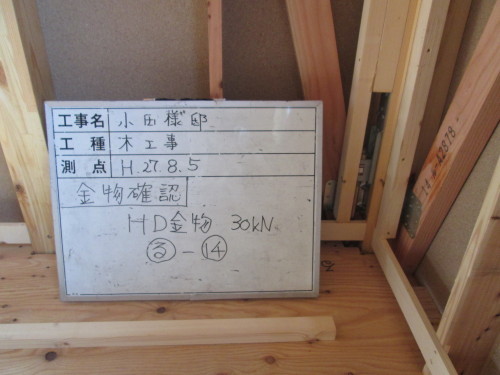 工事名 小田様邸
工種 木工事
測点 H.27.8.5
金物確認
HD金物 30kN
る-14